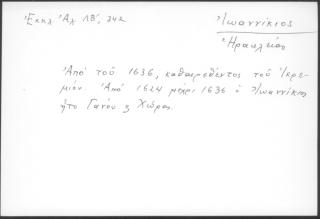 Ἐκκλ Ἀλ ΛΒ', 242
Ἰωαννίκιος
Ἡρακλείας
Ἀπὸ τοῦ 1636, καθαιρεθέντος τοῦ Ἱερε-
μίου. Ἀπὸ 1624 μέχρι 1636 ὁ Ἰωαννίκιος
ἦτο Γάνου ϗ Χώρας.